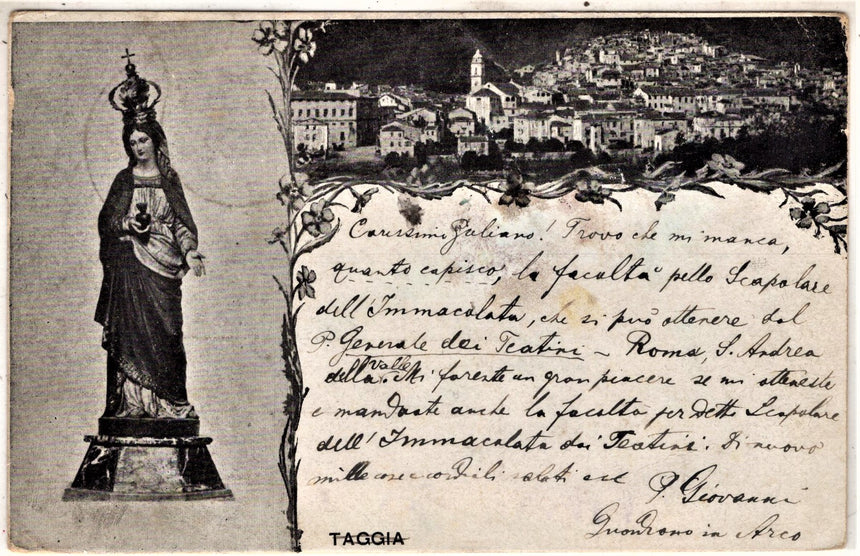 Carissimi Juliano! Trovo che mi manca,
quanto capisco, la facoltà pello Scapolare
dell'Immacolata, che si può ottenere dal
P. Generale dei Teatini – Roma, S. Andrea
della Valle. Mi fareste un gran piacere se mi otteneste
e mandaste anche la facoltà per detto Scapolare
dell'Immacolata dai Teatini. Di nuovo
mille cose cordiali saluti
P. Giovanni
in Arco
TAGGIA